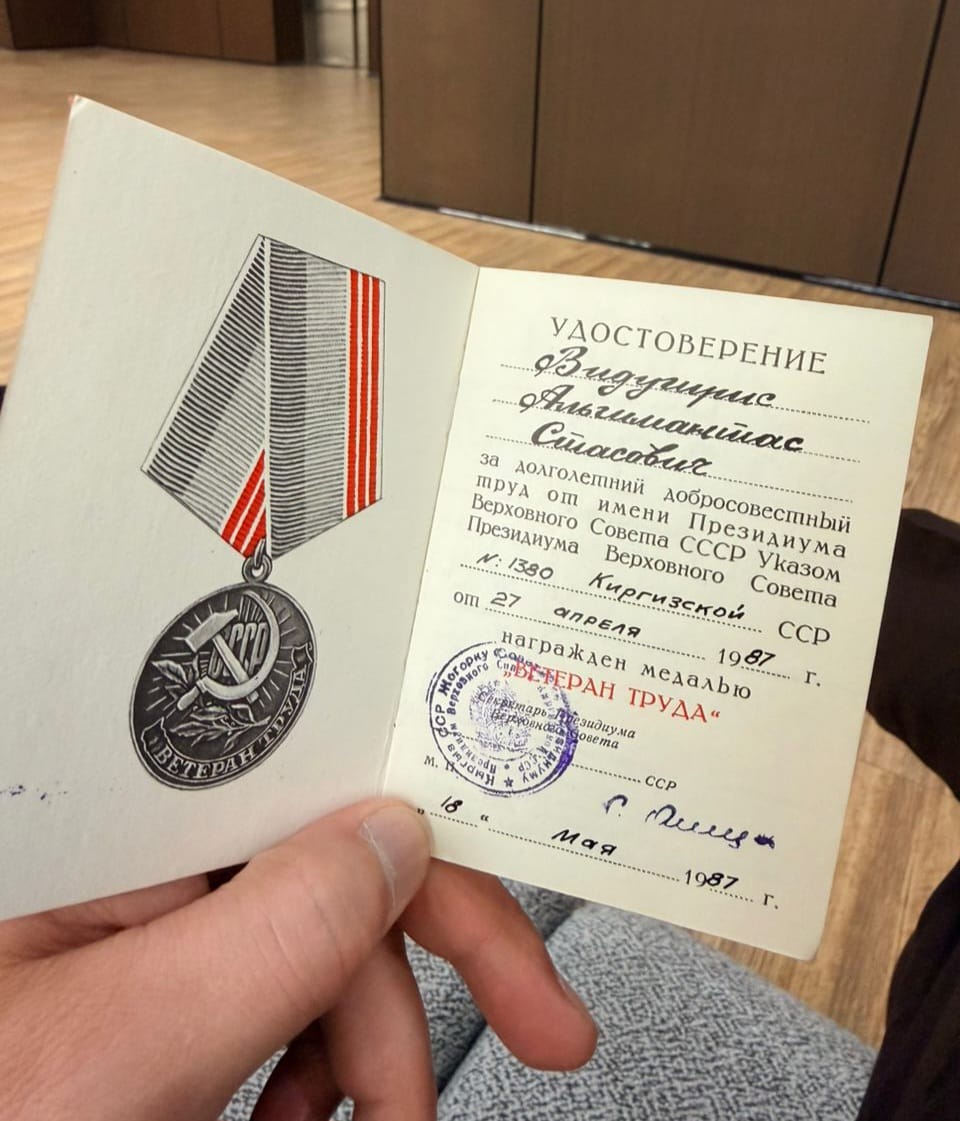 СССР
ВЕТЕРАН ТРУДА
УДОСТОВЕРЕНИЕ
Видугирис
Альгимантас
Стасович
за долголетний добросовестный
труд от имени Президиума
Верховного Совета СССР Указом
Президиума Верховного Совета
№: 1380 Киргизской ССР
от 27 апреля 1987 г.
награжден медалью
„ВЕТЕРАН ТРУДА“
Секретарь Президиума
Верховного Совета
ССР
М. П.
„ 18 “ Мая 1987 г.